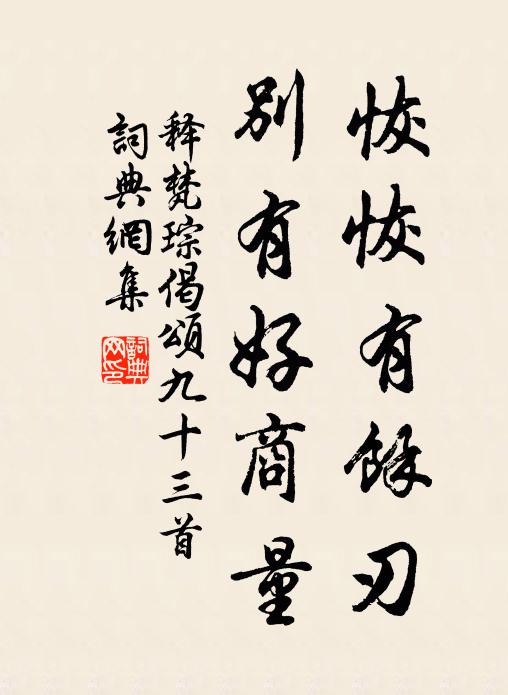 恢恢有餘刃
別有好商量
释梵琮偈頌九十三首
詞典網集
詞典网印